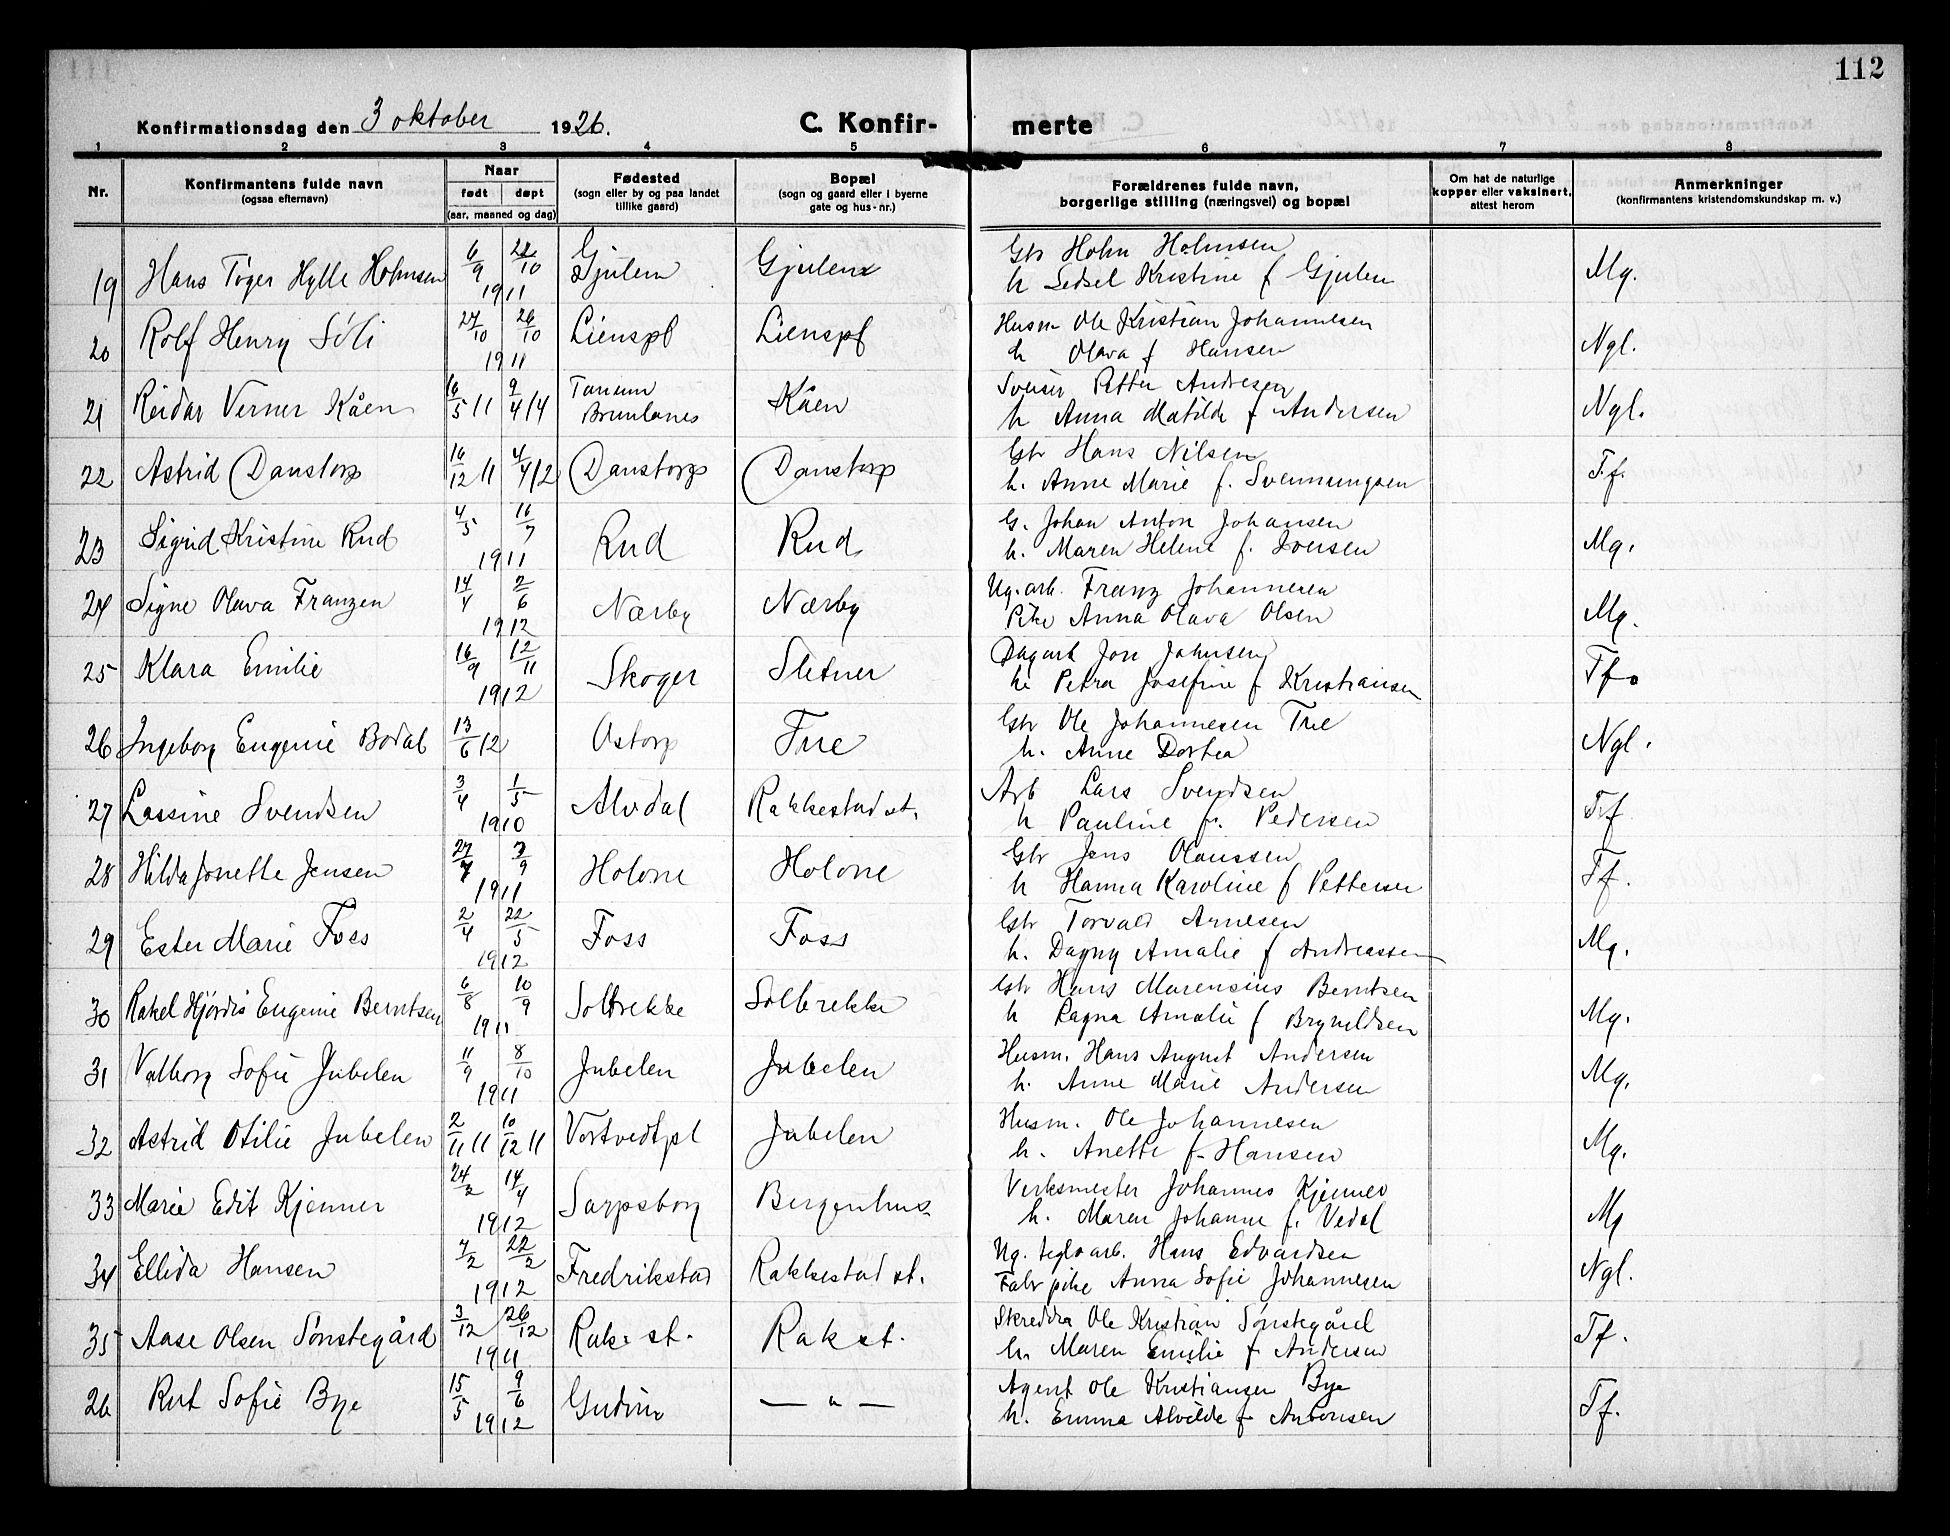 112
Konfirmationsdag den 3 oktober 1926.
C. Konfirmerte
1 2 3 4 5 6 7 8
Nr.
Konfirmantens fulde navn
(ogsaa efternavn)
Naar
født døpt
(aar, maaned og dag)
Fødested
(sogn eller by og paa landet
tillike gaard)
Bopæl
(sogn og gaard eller i byerne
gate og hus-nr.)
Forældrenes fulde navn,
borgerlige stilling (næringsvei) og bopæl
Om hat de naturlige
kopper eller vaksinert,
attest herom
Anmerkninger
(konfirmantens kristendomskundskap m. v.)
19 Hans Tøger Hylle Holmsen 6/9 /10 1911 Gjulem Gjulem
Gbr Holm Holmsen
h Sedsel Kristine f Gjulem Mg.
20 Rolf Henry Søli 27/10 26/10 1911 Lienspl Lienspl
Husm Ole Kristian Johannesen
h Olava f Hansen Ngl.
21 Reidar Verner Kåen 16/5 11 9/4 14 Tanum Brunlanes Kåen
Sveiser Petter Andresen
h Anna Matilde f Andersen Ngl.
22 Astrid Danstorp 16/12 11 4/4 12 Danstorp Danstorp
Gbr Hans Nilsen
h. Anne Marie f. Svenningsen T.f.
23 Sigrid Kristine Rud 4/5 16/7 1911 Rud Rud
G. Johan Anton Johansen
h. Maren Helene f. Iversen Mg.
24 Signe Olava Franzen 14/4 2/6 1912 Nærby Nærby
Ug. arb. Franz Johannesen
Pike Anna Olava Olsen Mg.
25 Klara Emilie 16/9 12/11 1912 Skoger Sletner
Dagarb Jon Johnsen
h. Petra Josefine f Kristiansen Tf.
26 Ingeborg Eugenie Bodal 13/6 12 Ostorp True
Gbr Ole Johannesen True
h. Anne Dortea Ngl.
27 Lassine Svendsen 3/4 1/5 1910 Alvdal Rakkestad st.
Arb Lars Svendsen
h Pauline f. Pedersen Tf
28 Hilda Jonette Jensen 27/7 3/9 1911 Holone Holone
Gbr Jens Olaussen
h Hanna Karoline f Pettersen Tf.
29 Ester Marie Foss 2/4 22/5 1912 Foss Foss
Gbr Torvald Arnesen
h. Dagny Amalie f Andreassen Mg.
30 Rakel Hjørdis Eugenie Berntsen 6/8 10/9 1911 Solbrekke Solbrekke
Gbr Hans Marensius Berntsen
h Ragna Amalie f Bryneldsen Mg.
31 Valborg Sofie Jubelen 11/9 8/10 1911 Jubelen Jubelen
Husm. Hans August Andersen
h. Anne Marie Andersen Mg.
32 Astrid Otilie Jubelen 2/11 11 10/12 11 Vortvedtpl Jubelen
Husm. Ole Johannesen
h. Anette f. Hansen Mg.
33 Marie Edit Kjenner 24/2 14/4 1912 Sarpsborg Bergenhus
Verksmester Johannes Kjenner
h. Maren Johanne f. Vedal Mg
34 Ellida Hansen 4/2 22/2 1912 Fredrikstad Rakkestad st.
Ug. teglv arb. Hans Edvardsen
Fabr pike Anna Sofie Johannesen Ngl.
35 Aase Olsen Sønstegård 3/12 26/12 1911 Rak. st. Rak st.
Skredder Ole Kristian Sønstegård
h. Maren Emilie f Andersen Tf.
26 Rut Sofie Bye 15/5 9/6 1912 Gudim — " —
Agent Ole Kristiansen Bye
h. Emma Alvilde f Antonsen Tf.